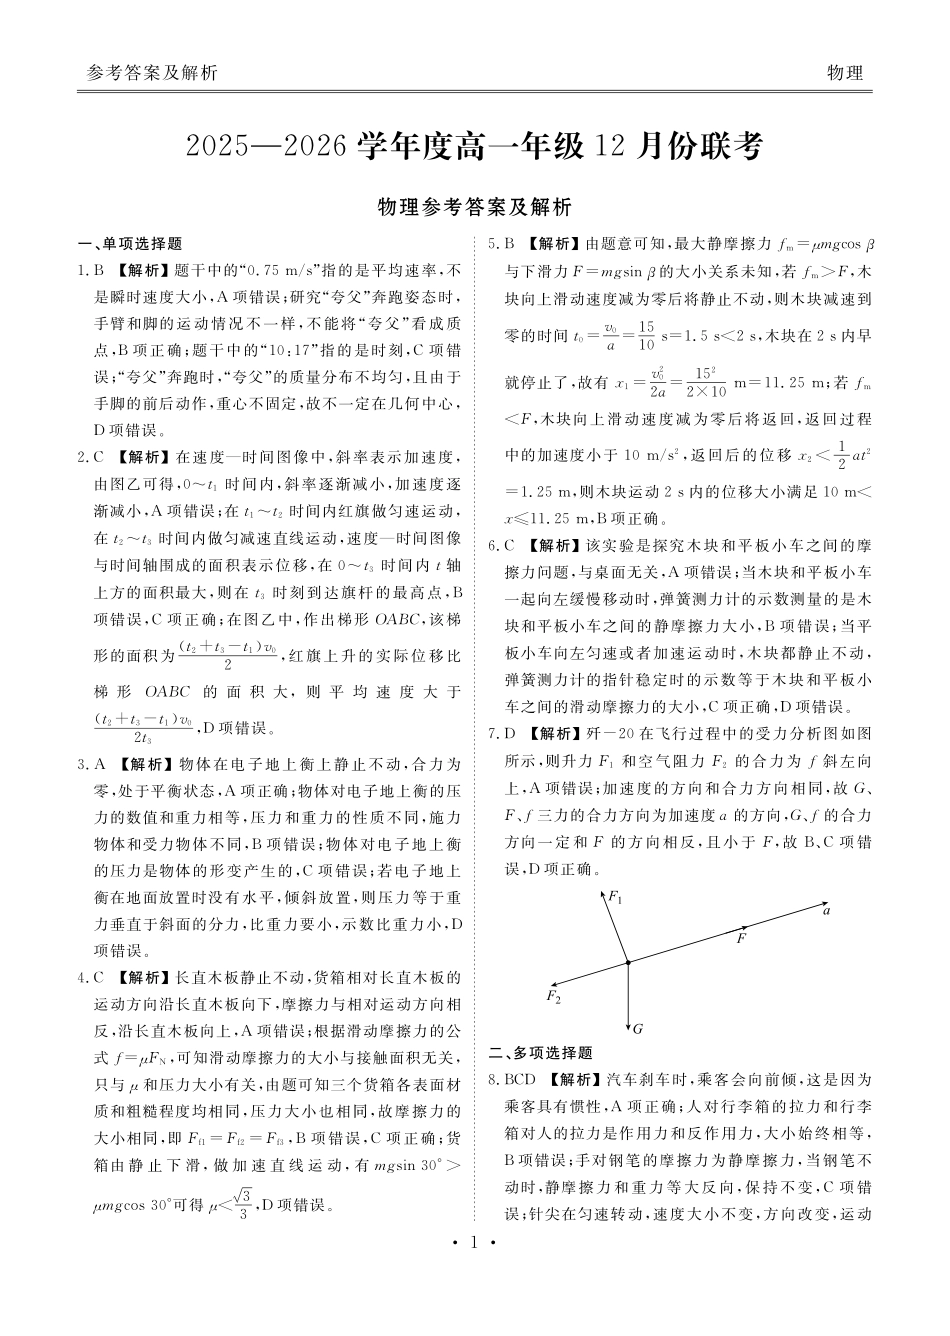 参考答案及解析
物理
2025—2026 学年度高一年级 12 月份联考
物理参考答案及解析
一、单项选择题
1. B 【解析】题干中的“0. 75 m/s”指的是平均速率,不
是瞬时速度大小,A 项错误;研究“夸父”奔跑姿态时,
手臂和脚的运动情况不一样,不能将“夸父”看成质
点,B 项正确;题干中的“10:17”指的是时刻,C 项错
误;“夸父”奔跑时,“夸父”的质量分布不均匀,且由于
手脚的前后动作,重心不固定,故不一定在几何中心,
D 项错误。
2. C 【解析】在速度—时间图像中,斜率表示加速度,
由图乙可得,0～t₁ 时间内,斜率逐渐减小,加速度逐
渐减小,A 项错误;在 t₁～t₂ 时间内红旗做匀速运动,
在 t₂～t₃ 时间内做匀减速直线运动,速度—时间图像
与时间轴围成的面积表示位移,在 0～t₃ 时间内 t 轴
上方的面积最大,则在 t₃ 时刻到达旗杆的最高点,B
项错误,C 项正确;在图乙中,作出梯形 OABC,该梯
形的面积为(t₂＋t₃－t₁)v₀/2,红旗上升的实际位移比
梯形 OABC 的面积大,则平均速度大于
(t₂＋t₃－t₁)v₀/2t₃,D 项错误。
3. A 【解析】物体在电子地上衡上静止不动,合力为
零,处于平衡状态,A 项正确;物体对电子地上衡的压
力的数值和重力相等,压力和重力的性质不同,施力
物体和受力物体不同,B 项错误;物体对电子地上衡
的压力是物体的形变产生的,C 项错误;若电子地上
衡在地面放置时没有水平,倾斜放置,则压力等于重
力垂直于斜面的分力,比重力要小,示数比重力小,D
项错误。
4. C 【解析】长直木板静止不动,货箱相对长直木板的
运动方向沿长直木板向下,摩擦力与相对运动方向相
反,沿长直木板向上,A 项错误;根据滑动摩擦力的公
式 f＝μF_N,可知滑动摩擦力的大小与接触面积无关,
只与 μ 和压力大小有关,由题可知三个货箱各表面材
质和粗糙程度均相同,压力大小也相同,故摩擦力的
大小相同,即 F_f1＝F_f2＝F_f3,B 项错误,C 项正确;货
箱由静止下滑,做加速直线运动,有 mgsin 30°＞
μmgcos 30°可得 μ＜√3/3,D 项错误。
5. B 【解析】由题意可知,最大静摩擦力 f_m＝μmgcos β
与下滑力 F＝mgsin β 的大小关系未知,若 f_m＞F,木
块向上滑动速度减为零后将静止不动,则木块减速到
零的时间 t₀＝v₀/a＝15/10 s＝1. 5 s＜2 s,木块在 2 s 内早
就停止了,故有 x₁＝v₀²/2a＝15²/2×10 m＝11. 25 m;若 f_m
＜F,木块向上滑动速度减为零后将返回,返回过程
中的加速度小于 10 m/s²,返回后的位移 x₂＜1/2 at²
＝1. 25 m,则木块运动 2 s 内的位移大小满足 10 m＜
x≤11. 25 m,B 项正确。
6. C 【解析】该实验是探究木块和平板小车之间的摩
擦力问题,与桌面无关,A 项错误;当木块和平板小车
一起向左缓慢移动时,弹簧测力计的示数测量的是木
块和平板小车之间的静摩擦力大小,B 项错误;当平
板小车向左匀速或者加速运动时,木块都静止不动,
弹簧测力计的指针稳定时的示数等于木块和平板小
车之间的滑动摩擦力的大小,C 项正确,D 项错误。
7. D 【解析】歼－20 在飞行过程中的受力分析图如图
所示,则升力 F₁ 和空气阻力 F₂ 的合力为 f 斜左向
上,A 项错误;加速度的方向和合力方向相同,故 G、
F、f 三力的合力方向为加速度 a 的方向,G、f 的合力
方向一定和 F 的方向相反,且小于 F,故 B、C 项错
误,D 项正确。
F₁
a
F
F₂
G
二、多项选择题
8. BCD 【解析】汽车刹车时,乘客会向前倾,这是因为
乘客具有惯性,A 项正确;人对行李箱的拉力和行李
箱对人的拉力是作用力和反作用力,大小始终相等,
B 项错误;手对钢笔的摩擦力为静摩擦力,当钢笔不
动时,静摩擦力和重力等大反向,保持不变,C 项错
误;针尖在匀速转动,速度大小不变,方向改变,运动
• 1 •